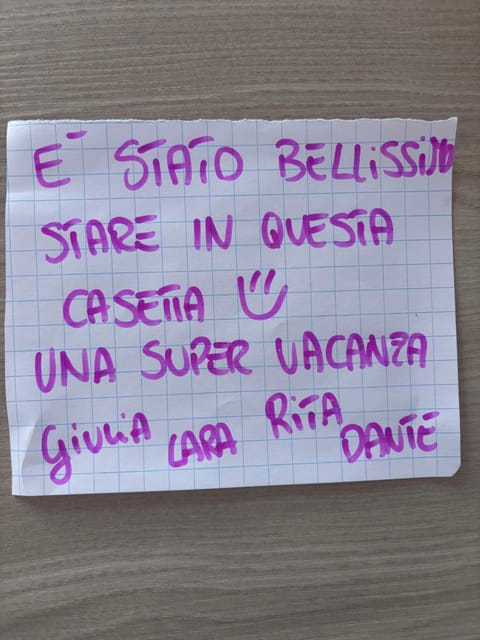 È STATO BELLISSIMO
STARE IN QUESTA
CASETTA
UNA SUPER VACANZA
GIULIA LARA RITA DANTE